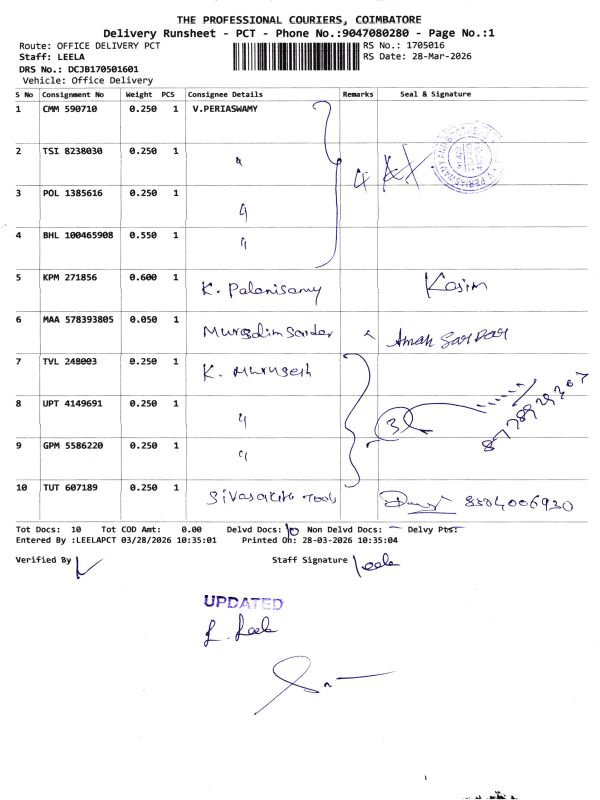 THE PROFESSIONAL COURIERS, COIMBATORE
Delivery Runsheet - PCT - Phone No.:9047080280 - Page No.:1
Route: OFFICE DELIVERY PCT
RS No.: 1705016
Staff: LEELA
RS Date: 28-Mar-2026
DRS No.: DCJB170501601
Vehicle: Office Delivery
S No Consignment No Weight PCS Consignee Details Remarks Seal & Signature
1 CMM 590710 0.250 1 V.PERIASWAMY
2 TSI 8238030 0.250 1 " 4
3 POL 1385616 0.250 1 "
4 BHL 100465908 0.550 1 "
5 KPM 271856 0.600 1 K. Palanisamy Kasim
6 MAA 578393805 0.050 1 Aman Sardar
7 TVL 248003 0.250 1 K. Murugesh
8 UPT 4149691 0.250 1 " 3
9 GPM 5586220 0.250 1 "
10 TUT 607189 0.250 1 Sivasakthi Tools
Tot Docs: 10 Tot COD Amt: 0.00 Delvd Docs: 10 Non Delvd Docs: - Delvy Pts:
Entered By :LEELAPCT 03/28/2026 10:35:01 Printed On: 28-03-2026 10:35:04
Verified By Staff Signature Leela
UPDATED
L. Leela